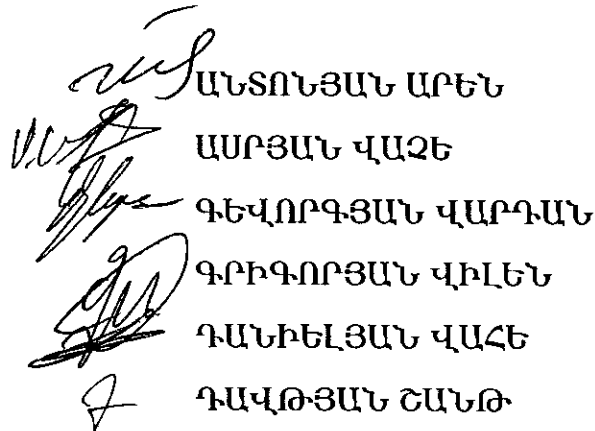 ԱՆՏՈՆՅԱՆ ԱՐԵՆ
ԱՍՐՅԱՆ ՎԱՉԵ
ԳԵՎՈՐԳՅԱՆ ՎԱՐԴԱՆ
ԳՐԻԳՈՐՅԱՆ ՎԻԼԵՆ
ԴԱՆԻԵԼՅԱՆ ՎԱՀԵ
ԴԱՎԹՅԱՆ ՇԱՆԹ